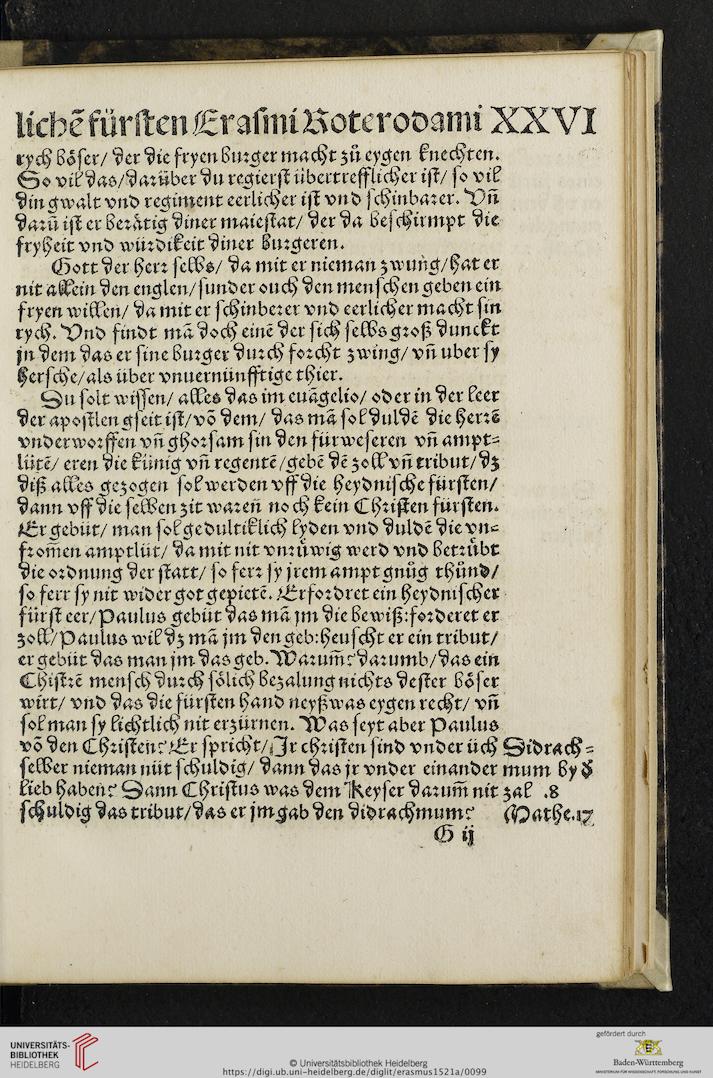 lichē fürsten Erasmi Roterodami XXVI
rych böser/ der die fryen burger macht zů eygen knechten.
So vil das/ darüber du regierst übertrefflicher ist/ so vil
din gwalt vnd regiment eerlicher ist vnd schinbarer. Vñ
darũ ist er berätig diner maiestat/ der da beschirmpt die
fryheit vnd würdikeit diner burgeren.
Gott der herr selbs/ da mit er nieman zwung/ hat er
nit allein den englen/ sunder ouch den menschen geben ein
fryen willen/ da mit er schinberer vnd eerlicher macht sin
rych. Vnd findt mā doch einē der sich selbs groß dunckt
jn dem das er sine burger durch forcht zwing/ vñ uber sy
hersche/ als über vnuernünfftige thier.
Du solt wissen/ alles das im euāgelio/ oder in der leer
der apostlen gseit ist/ vō dem/ das mā sol duldē die herrē
vnderworffen vñ ghorsam sin den fürweseren vñ ampt⸗
lütē/ eren die künig vñ regentē/ gebē dē zoll vñ tribut/ dz
diß alles gezogen sol werden vff die heydnische fürsten/
dann vff die selben zit warēn noch kein Christen fürsten.
Er gebüt/ man sol gedultiklich lyden vnd duldē die vn⸗
from̄en amptlüt/ da mit nit vnrüwig werd vnd betrübt
die ordnung der statt/ so ferr sy jrem ampt gnůg thünd/
so ferr sy nit wider got gepietē. Erfordret ein heydnischer
fürst eer/ Paulus gebüt das mā jm die bewiß: forderet er
zoll/ Paulus wil dz mā jm den geb: heuscht er ein tribut/
er gebüt das man jm das geb. Warum̄? darumb/ das ein
Chistrē mensch durch sölich bezalung nichts dester böser
wirt/ vnd das die fürsten hand neyßwas eygen recht/ vñ
sol man sy lichtlich nit erzürnen. Was seyt aber Paulus
vō den Christen? Er spricht/ Jr christen sind vnder üch
selber nieman nüt schuldig/ dann das jr vnder einander
lieb haben? Dann Christus was dem Keyser darum̄ nit
schuldig das tribut/ das er jm gab den didrachmum?
Sidrach⸗
mum by ð
zal .8
Mathe.17
G ij
UNIVERSITÄTS-
BIBLIOTHEK
HEIDELBERG
© Universitätsbibliothek Heidelberg
https://digi.ub.uni-heidelberg.de/diglit/erasmus1521a/0099
gefördert durch
Baden-Württemberg
MINISTERIUM FÜR WISSENSCHAFT, FORSCHUNG UND KUNST